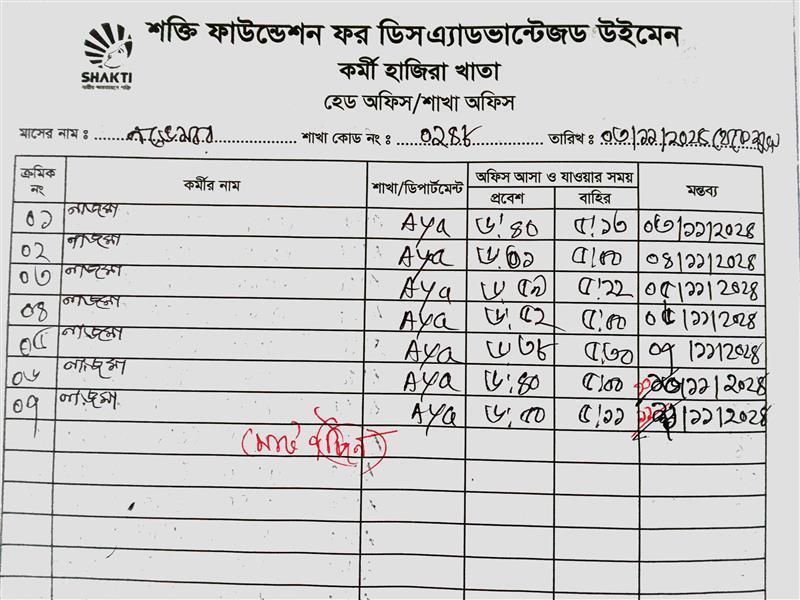 শক্তি ফাউন্ডেশন ফর ডিসএ্যাডভান্টেজড উইমেন
SHAKTI
কর্মী হাজিরা খাতা
হেড অফিস/শাখা অফিস
মাসের নাম : নভেম্বর শাখা কোড নং : ০২৪৮ তারিখ : ০৩/১১/২০২৪
ক্রমিক নং কর্মীর নাম শাখা/ডিপার্টমেন্ট অফিস আসা ও যাওয়ার সময় মন্তব্য
প্রবেশ বাহির
০১ নাজমা Aya ৮:৪০ ৫:১৩ ০৩/১১/২০২৪
০২ নাজমা Aya ৫:০০ ০৪/১১/২০২৪
০৩ নাজমা Aya ৫:২২ ০৫/১১/২০২৪
০৪ নাজমা Aya ৮:৫২ ৫:০০ /১১/২০২৪
০৫ নাজমা Aya ৮:৩৮ ৫:৩০ ০৭/১১/২০২৪
০৬ নাজমা Aya ৮:৪০ ৫:০০ /১১/২০২৪
০৭ নাজমা Aya ৮:৫০ ৫:১১ /১১/২০২৪
(মোট ৭ দিন)